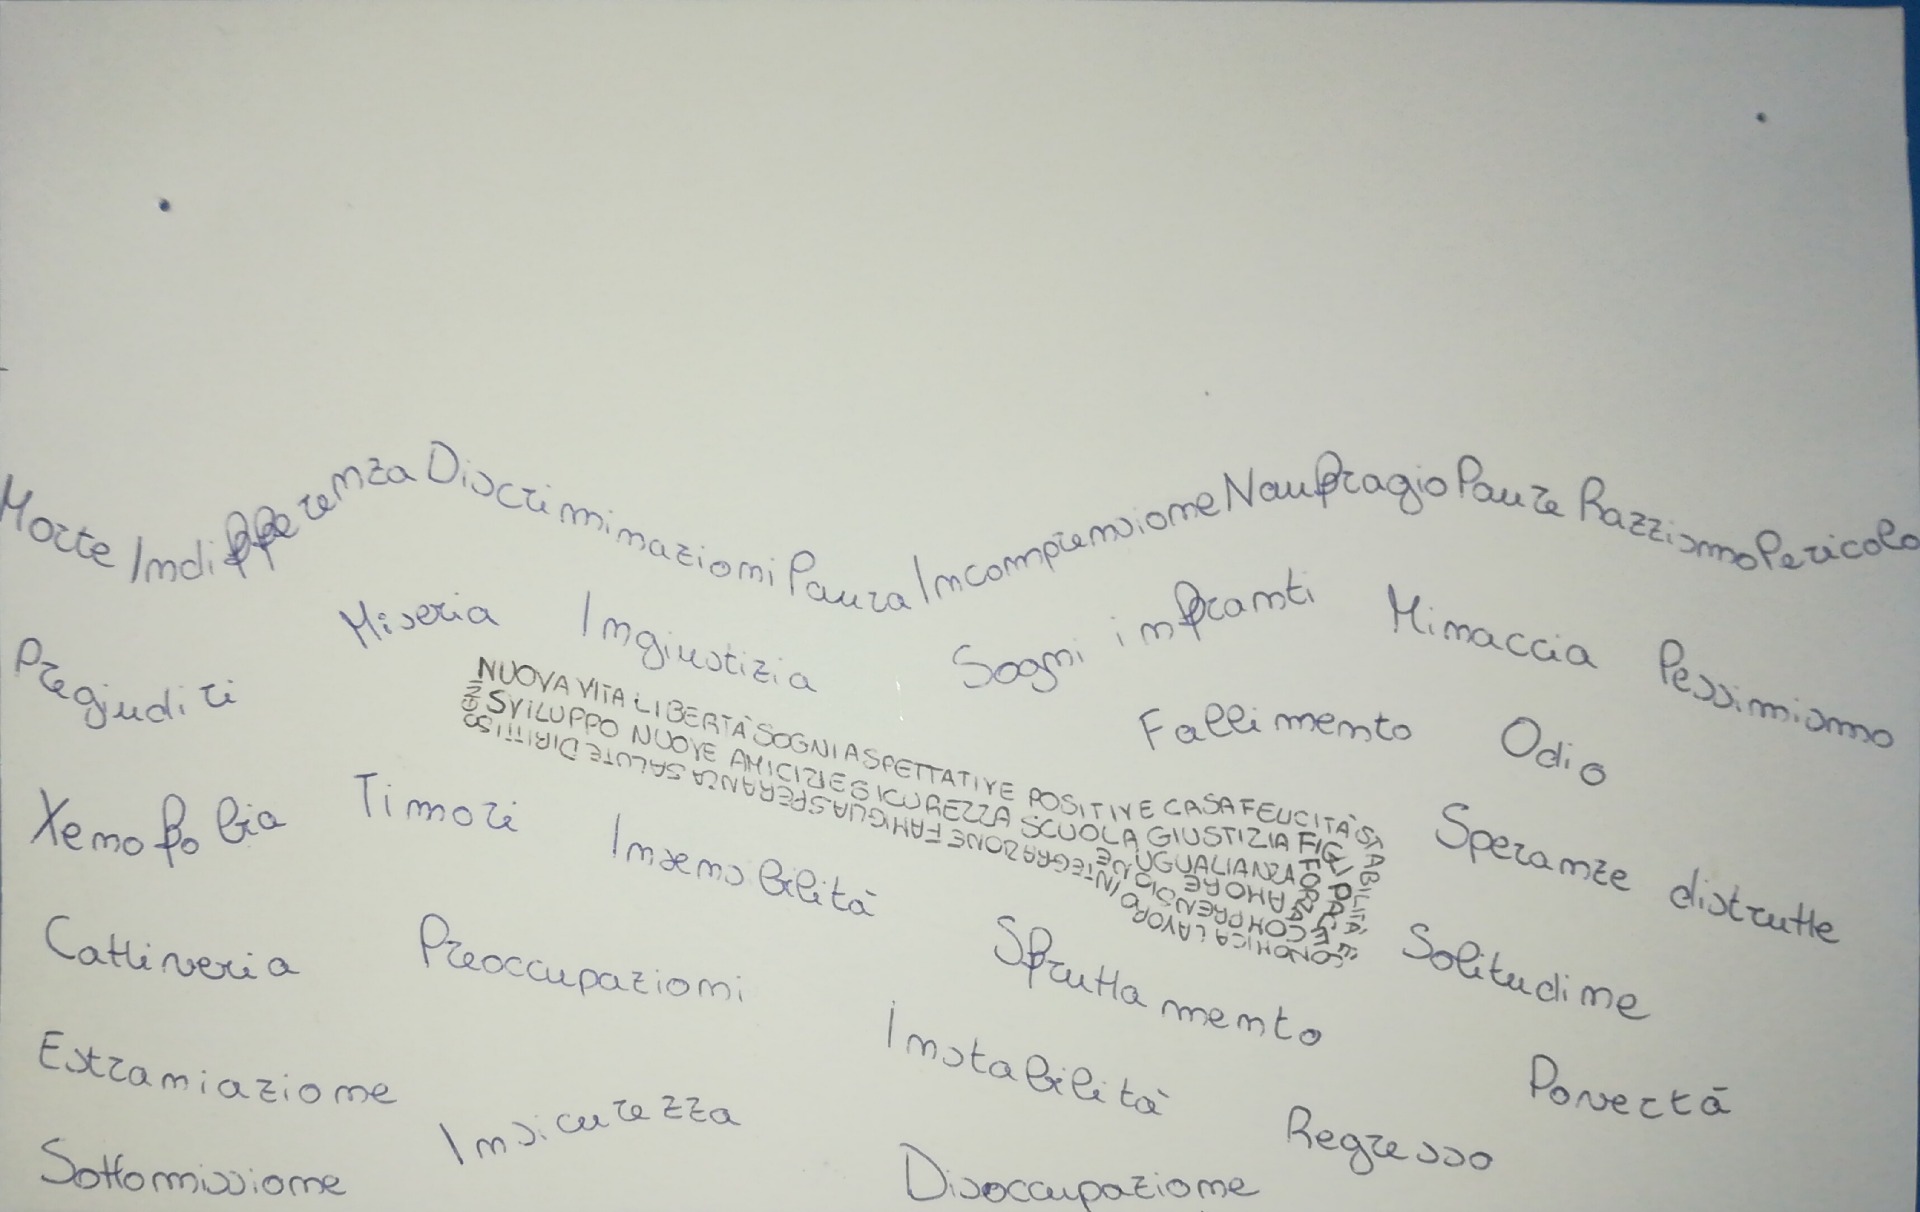 Morte Indifferenza Discriminazioni Paura Incomprensione Naufragio Paure Razzismo Pericolo
Miseria Ingiustizia Sogni infranti Minaccia Pessimismo
Pregiudizi
Fallimento Odio
NUOVA VITA LIBERTÀ SOGNI ASPETTATIVE POSITIVE CASA FELICITÀ STABILITÀ ECONOMICA LAVORO INTEGRAZIONE FAMIGLIA SPERANZA SALUTE DIRITTI
SVILUPPO NUOVE AMICIZIE SICUREZZA SCUOLA GIUSTIZIA FIGLI PACE
COMPRENSIONE UGUALIANZA FORZA
AMORE
Xenofobia Timori Insensibilità Speranze distrutte
Cattiveria Preoccupazioni Sfruttamento Solitudine
Estraniazione Insicurezza Instabilità Povertà
Regresso
Sottomissione Disoccupazione